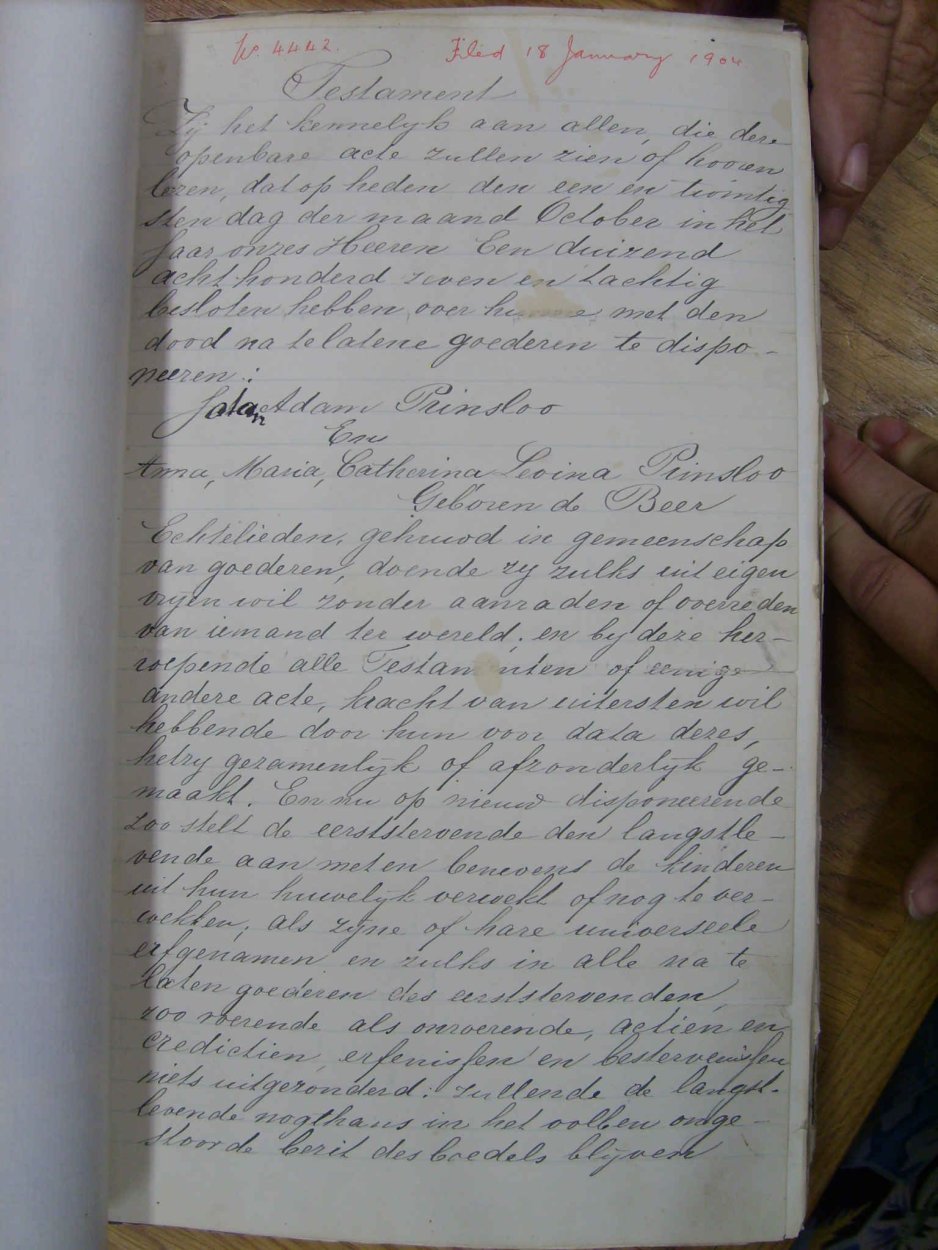 No. 4442. Filed 18 January 1904
Testament
Zij het kennelyk aan allen, die deze
openbare acte zullen zien of hooren
lezen, dat op heden den een en twintig
sten dag der maand October in het
Jaar onzes Heeren Een duizend
acht honderd zeven en tachtig
besloten hebben, over met den
dood na telatene goederen te dispo-
neeren:
Adam Prinsloo
En
Anna, Maria, Catherina Levina Prinsloo
Geboren de Beer
Echtelieden, gehuwd in gemeenschap
van goederen, doende zy zulks uit eigen
vryen wil zonder aanraden of overreden
van iemand ter wereld; en by deze her-
roepende alle Testamenten of eenige
andere acte, kracht van uitersten wil
hebbende door hun voor data dezes,
hetzy gezamenlyk of afzonderlyk ge-
maakt. En nu op nieuw disponeerende
zoo stelt de eerststervende den langstle-
vende aan met en benevens de kinderen
uit hun huwelyk verwekt of nog te ver-
wekken, als zyne of hare universeele
erfgenamen en zulks in alle na te
laten goederen des eerststervenden,
zoo roerende als onroerende, actien en
credictien, erfenissen en bestervenissen
niets uitgezonderd: zullende de langst-
levende nogthans in het vollen onge-
stoorde bezit des boedels blyven